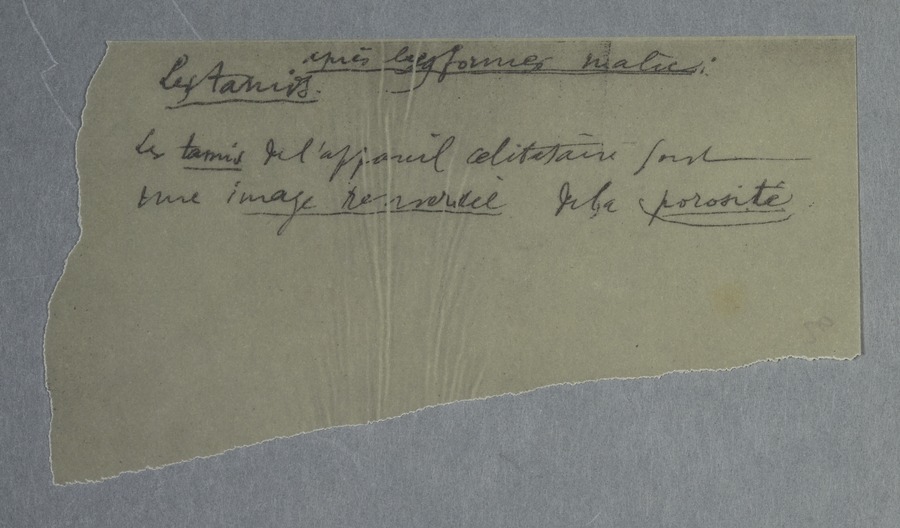 après les formes malic:
Les tamis.
Les tamis de l'appareil célibataire sont
une image renversée de la porosité